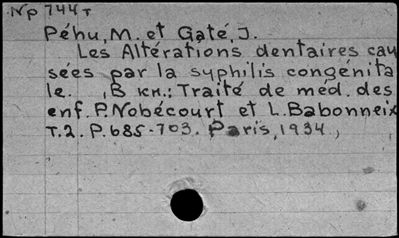 Np 744т
Péhu, M. et Gaté, J.
Les Altérations dentaires cau
sées par la syphilis congénita
le. , В кн.: Traité de méd. des
enf. P. Nobécourt et L. Babonneix
T.2. P. 685-703. Paris, 1934,